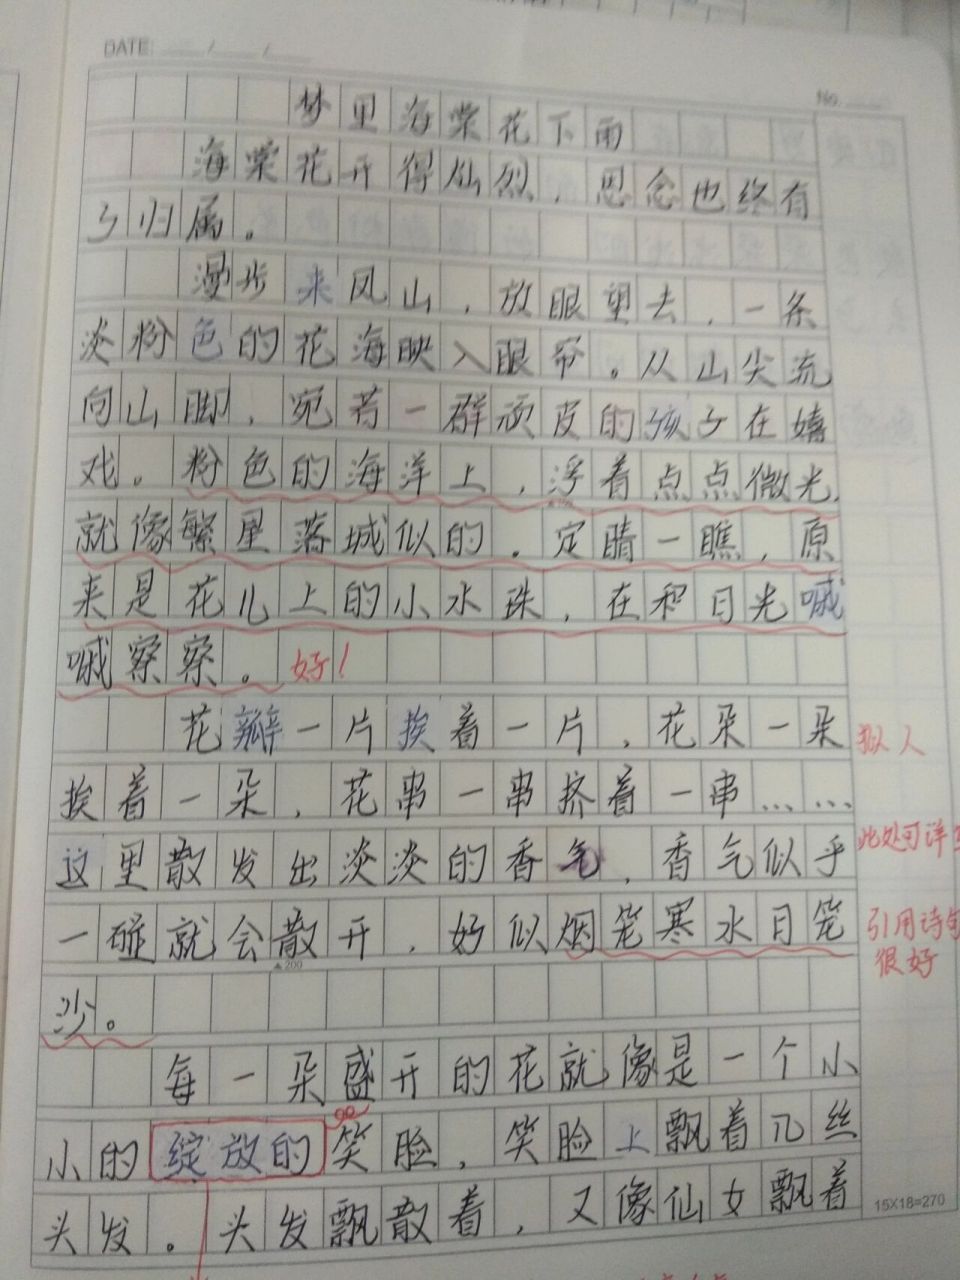 DATE: / /
No.
梦里海棠花下雨
海棠花开得灿烈，思念也终有
了归属。
漫步来凤山，放眼望去，一条
淡粉色的花海映入眼帘。从山尖流
向山脚，宛若一群顽皮的孩子在嬉
戏。粉色的海洋上，浮着点点微光，
就像繁星落城似的。定睛一瞧，原
来是花儿上的小水珠，在和日光嘁
嘁察察。好！
花瓣一片挨着一片，花朵一朵
拟人
挨着一朵，花串一串挤着一串……
这里散发出淡淡的香气，香气似乎
此处可详
一碰就会散开，好似烟笼寒水日笼
▲200
引用诗句
很好
沙。
每一朵盛开的花就像是一个小
小的绽放的笑脸，笑脸上飘着几丝
头发。头发飘散着，又像仙女飘着
15X18=270